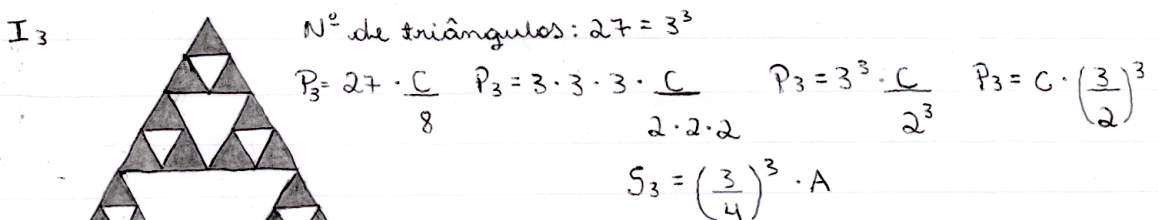 I₃ Nº de triângulos: 27 = 3³
P₃ = 27 · C/8 P₃ = 3 · 3 · 3 · C/2 · 2 · 2 P₃ = 3³ · C/2³ P₃ = C · (3/2)³
S₃ = (3/4)³ · A